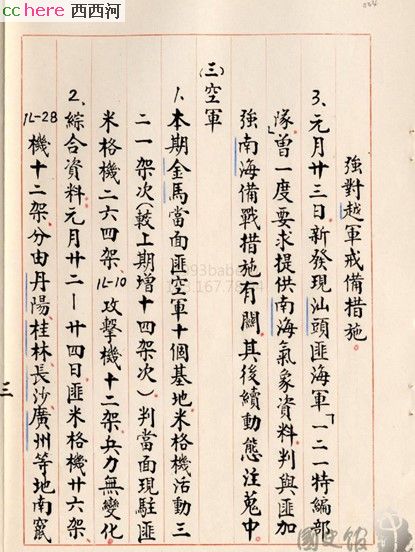 cchere 西西河
強對越軍戒備措施。
3、元月廿三日新發現汕頭匪海軍「一二一特編部
隊」曾一度要求提供南海氣象資料，判與匪加
強南海備戰措施有關，其後續動態注蒐中。
(三)空軍
1、本期金馬當面匪空軍十個基地米格機活動三
二一架次(較上期增十四架次)判當面現駐匪
米格機二六四架、IL-10攻擊機十二架，兵力無變化
2、綜合資料，元月廿二—廿四日匪米格機廿六架、
IL-28機十二架，分由丹陽桂林長沙廣州等地南竄
三
國史館